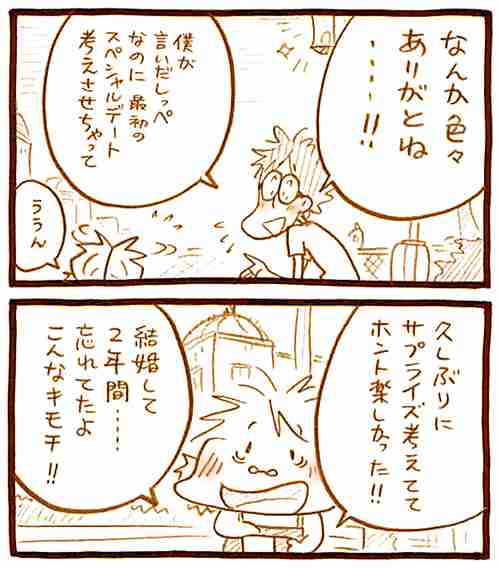 なんか色々
ありがとね
……!!
僕が
言いだしっぺ
なのに 最初の
スペシャルデート
考えさせちゃって
ううん
久しぶりに
サプライズ考えてて
ホント楽しかった!!
結婚して
2年間……
忘れてたよ
こんなキモチ!!